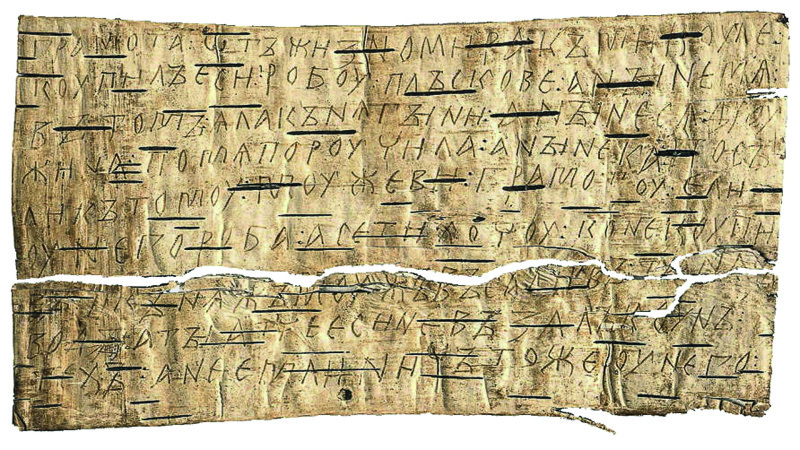 ГРАМОТА : ѠТЪ ЖИЗНОМИРА : КЪ МИКОУЛЕ :
КОУПИЛЪ ЕСИ : РОБОУ : ПЛЪСКОВЕ : А НЫНЕ МѦ :
ВЪ ТОМЪ : ѦЛА КЪНѦГЫНИ : А НЫНЕ СѦ ДРОУ
ЖИНА : ПО МѦ ПОРОУЧИЛА : А НЫНЕ КА : ПОСЪ
ЛИ КЪ ТОМОУ : МОУЖЕВИ : ГРАМОТОУ : Е ЛИ
ОУ НЕГО РОБА : А СЕ ТИ ХОЧОУ : КОНЕ КОУПИ
КЪНѦЖЪ МОУЖЪ ВЪСАДИВЪ
ВОДЫ : А ТЫ АТЧЕ ЕСИ НЕ ВЪЗАЛЪ КОУНЪ :
ТЕХЪ : А НЕ ЕМЛИ : НИЧЪТО ЖЕ ОУ НЕГО :